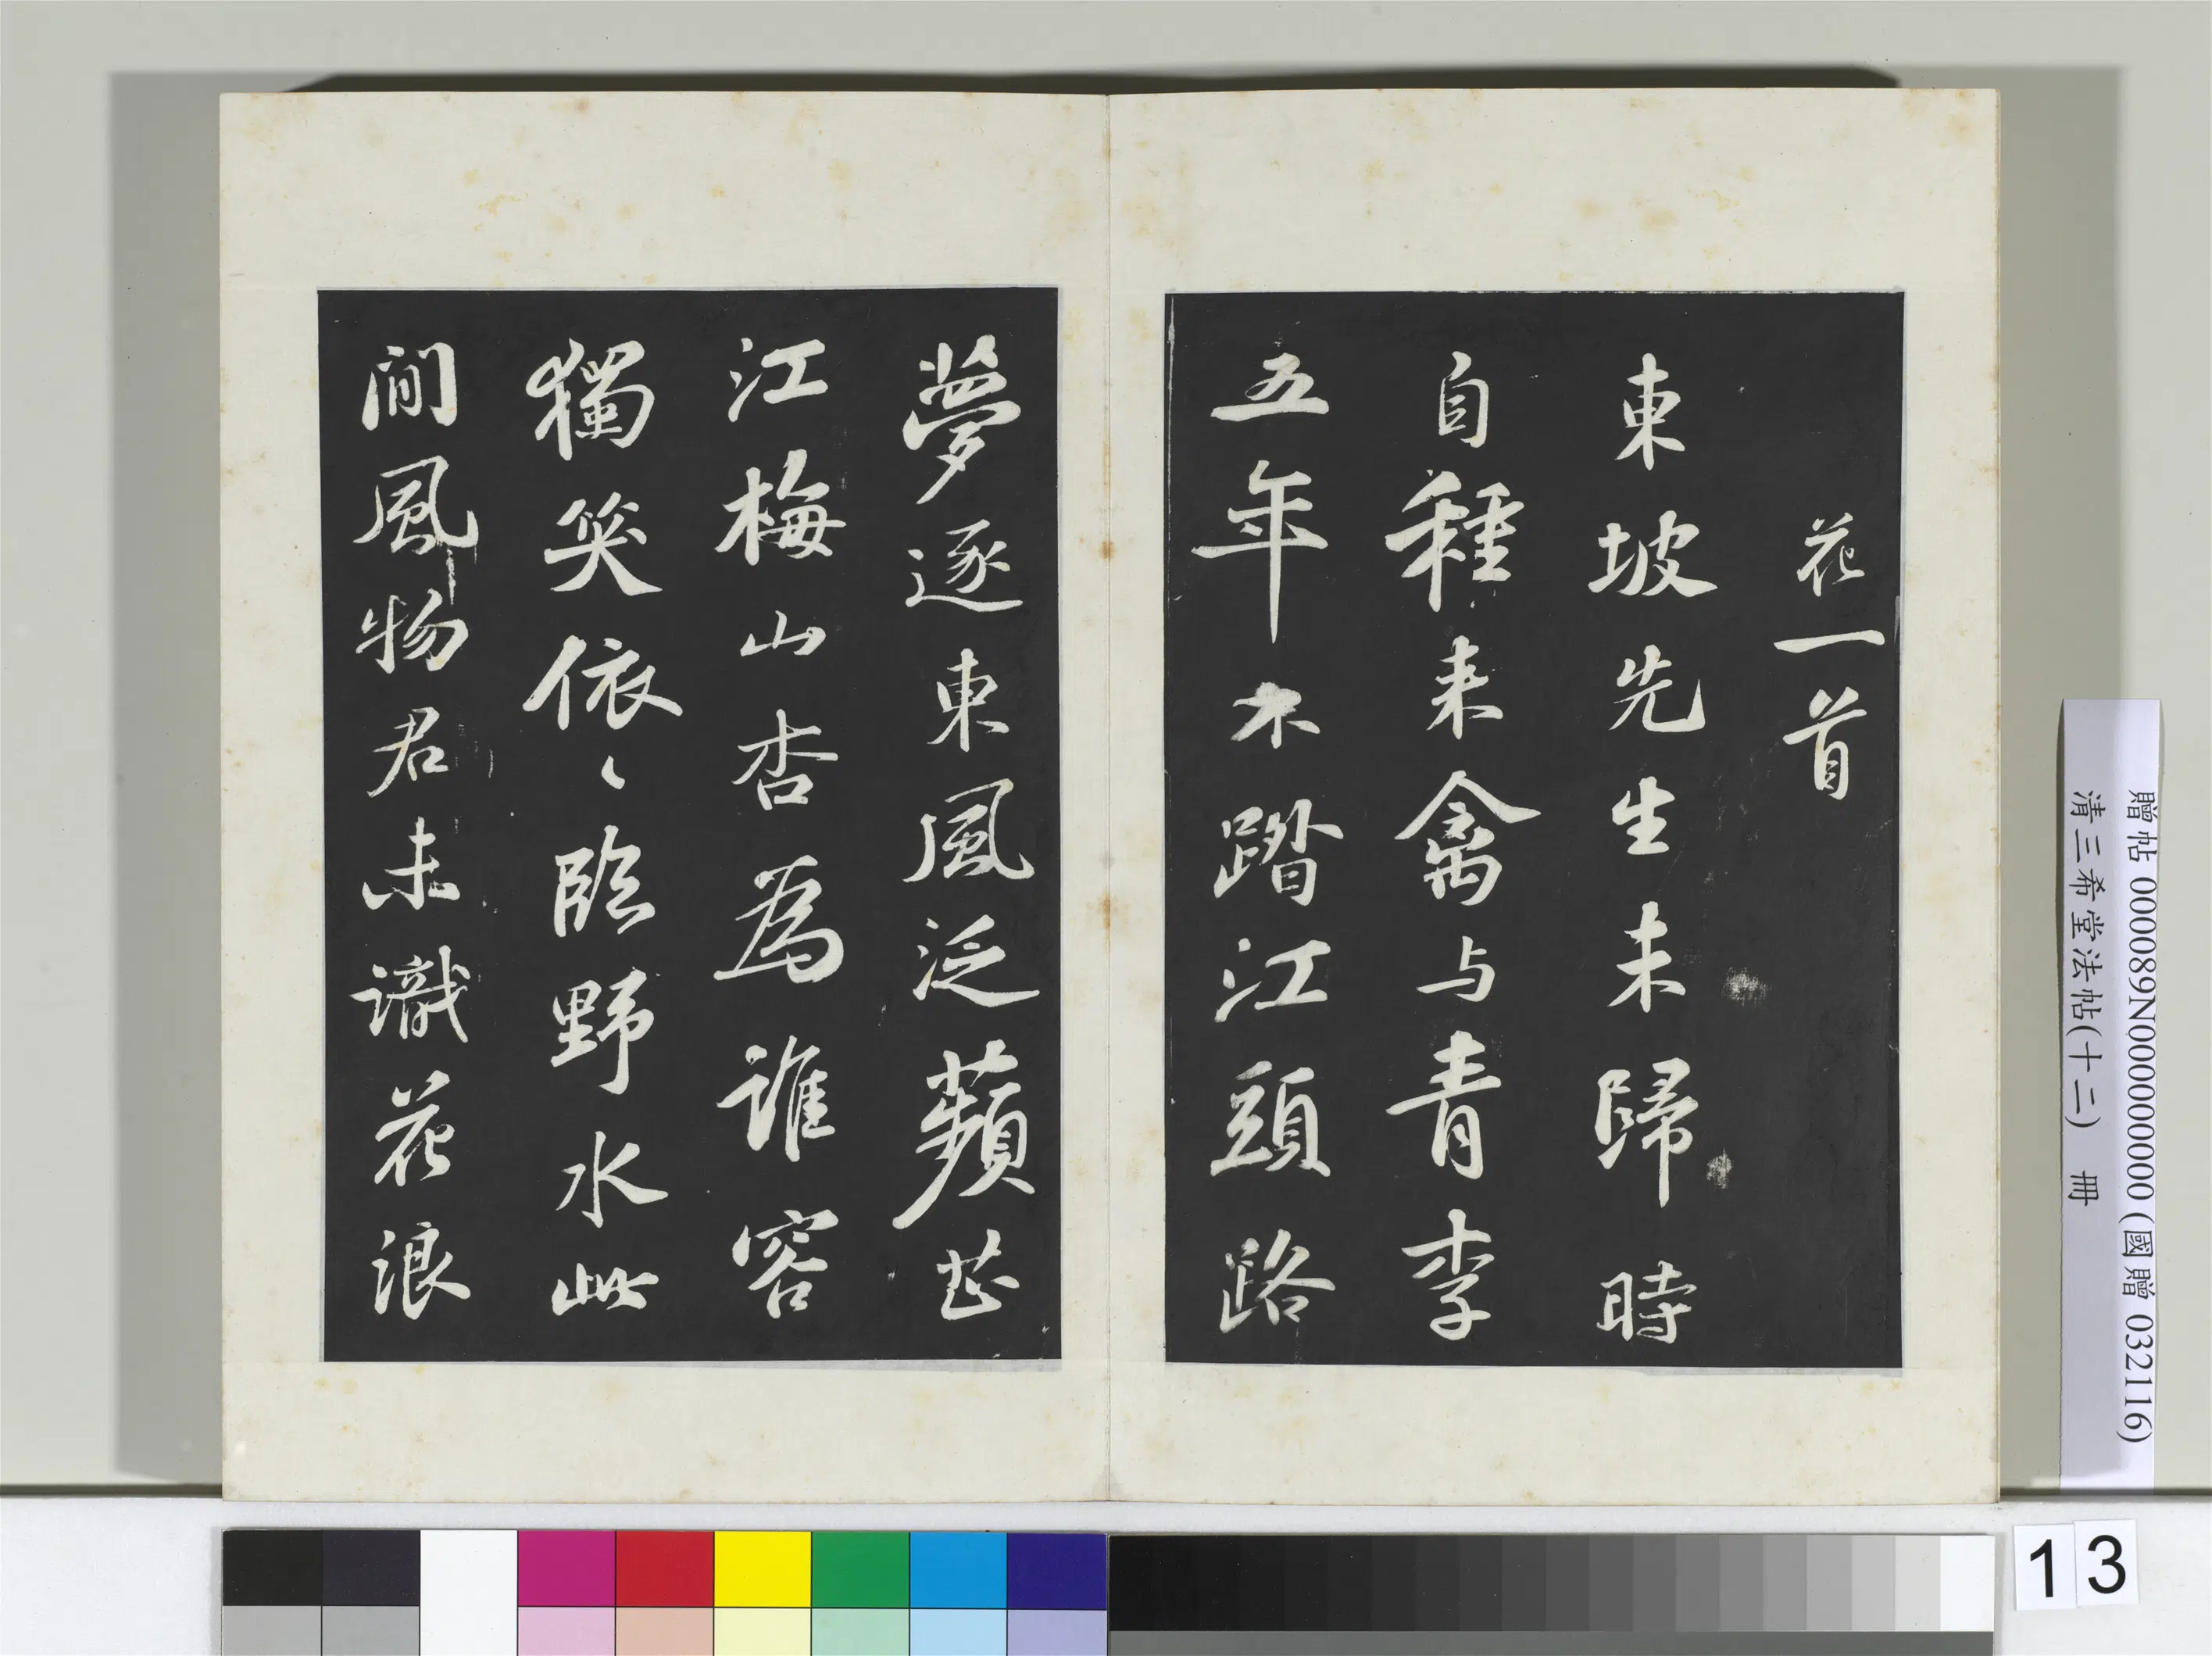 花一首
東坡先生未歸時
自種来禽与青李
五年不踏江頭路
夢逐東風泛蘋芷
江梅山杏為誰容
獨笑依〻臨野水此
間風物君未識花浪
贈帖 000089N000000000 (國贈 032116)
清三希堂法帖(十二) 冊
13